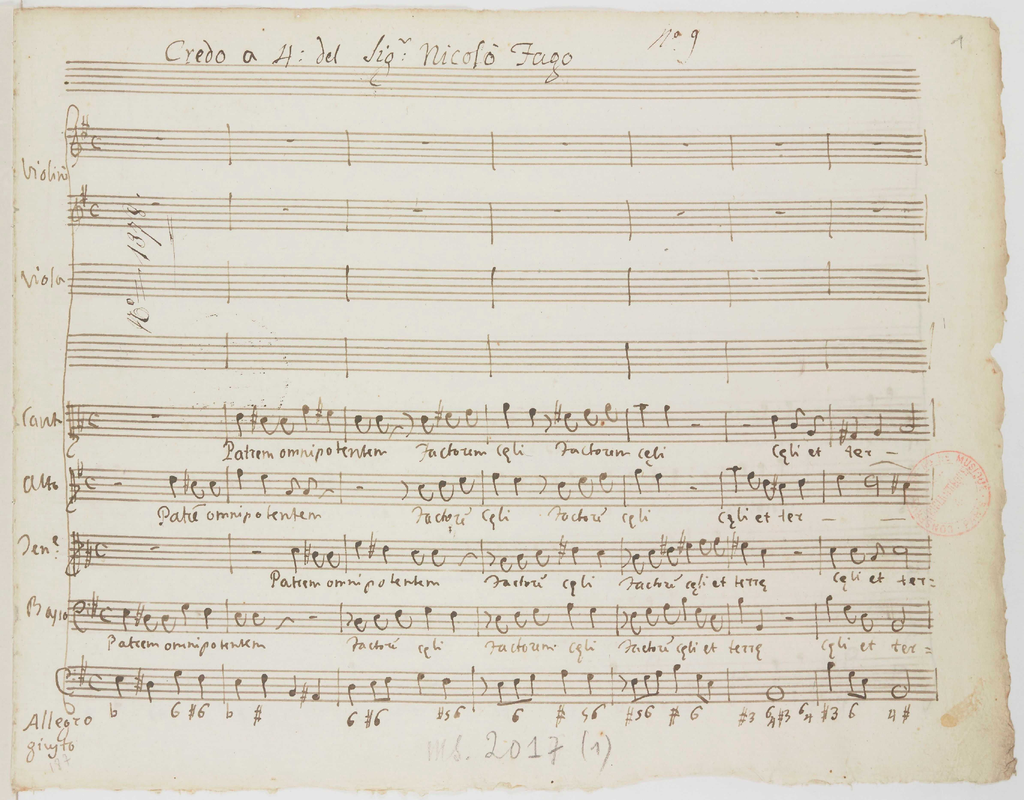 Credo a 4: del Sig.r Nicolò Fago
N.o 9
1
Violini
Viola
Cant
Patrem omnipotentem Factorem cęli Factorem cęli cęli et ter -
Alto
Patrē omnipotentem Factorū cęli Factorū cęli cęli et ter - -
Ten.e
Patrem omnipotentem Factorū cęli Factorū cęli et terrę cęli et ter=
Basso
Patrem omnipotentem Factorū cęli Factorem cęli Factorū cęli et terrę cęli et ter=
b 6 #6 b # 6 #6 #56 6 # 56 #56 # 6 #3 6 4 #3 6 4 #3 6 4 #
Allegro
giusto
ms. 2017 (1)